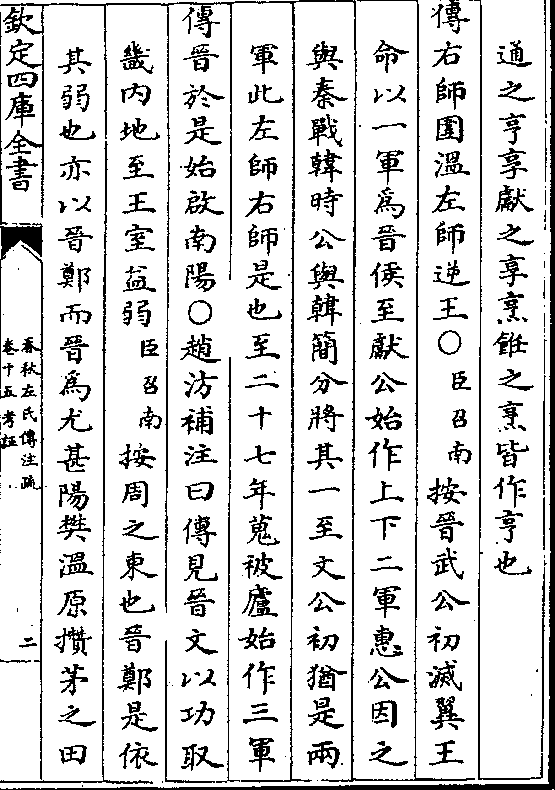 通之亨享獻之享烹飪之烹皆作亨也
傳右師圍溫左師逆王〇臣召南按晉武公初滅翼王
命以一軍爲晉侯至獻公始作上下二軍惠公因之
與秦戰韓時公與韓簡分將其一至文公初猶是兩
軍此左師右師是也至二十七年蒐被廬始作三軍
傳晉於是始啟南陽〇趙汸補注曰傳見晉文以功取
畿内地至王室益弱臣召南按周之東也晉鄭是依
其弱也亦以晉鄭而晉爲尤甚陽樊溫原攢茅之田
欽定四庫全書
春秋左氏傳注疏
卷十五考証
二